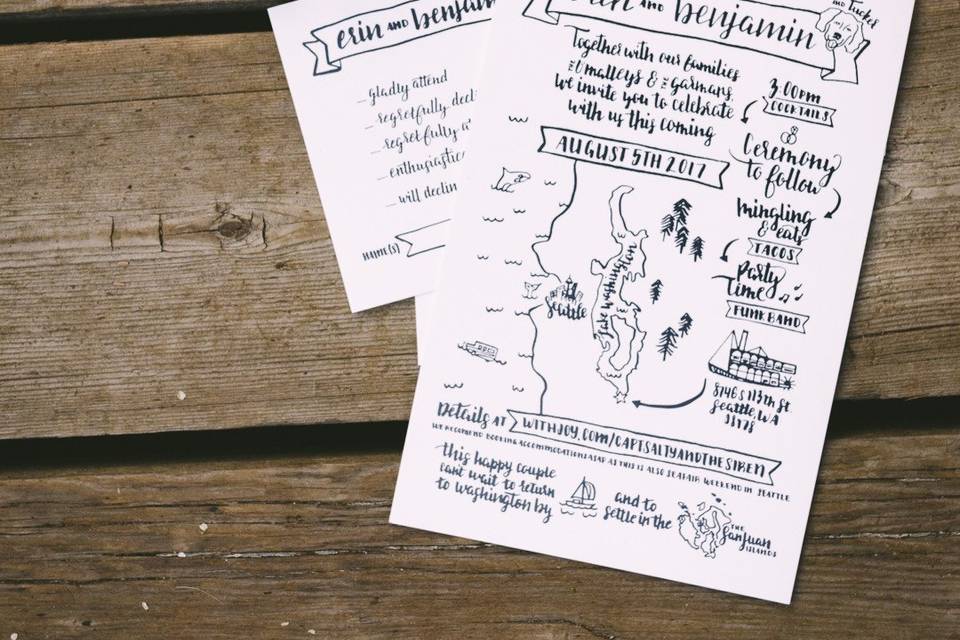 erin AND benjamin
gladly attend
regretfully
regretfully
enthusiastic
will declin
NAME(S)
erin AND benjamin
AND Tucker
Together with our families
THE O'malleys & THE garmans,
we invite you to celebrate
with us this coming
AUGUST 5TH 2017
3:00PM
COCKTAILS
Ceremony
to follow
mingling
& eats
TACOS
Party
time
FUNK BAND
Seattle
Lake Washington
8746 S 113th St.
Seattle, WA
98178
Details AT WITHJOY.COM/CAPTSALTYANDTHESIREN
WE RECOMMEND BOOKING ACCOMMODATIONS ASAP AS THIS IS ALSO SEAFAIR WEEKEND IN SEATTLE
this happy couple
can't wait to return
to washington by
and to
settle in the
THE
San Juan
ISLANDS